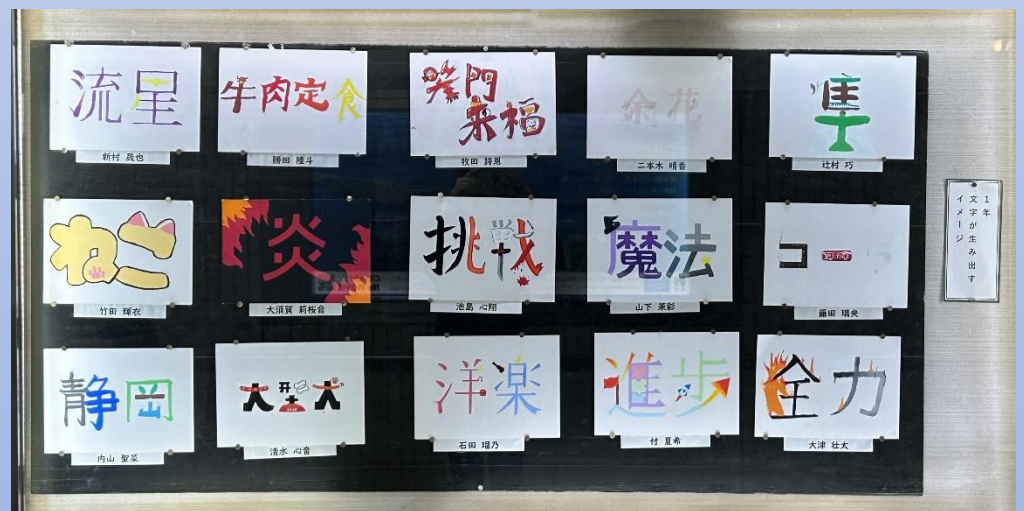 流星
新村 晟也
牛肉定食
勝田 陸斗
笑門
来福
牧田 詩恩
余花
二本木 晴香
隼
辻村 巧
ねこ
竹田 輝衣
炎
大須賀 莉桜音
挑戦
池島 心翔
魔法
山下 茉彩
コーラ
藤田 璃央
静岡
内山 聖菜
清水 心雪
洋楽
石田 瑠乃
進歩
付 夏希
全力
大津 壮太
1年
文字が生み出す
イメージ